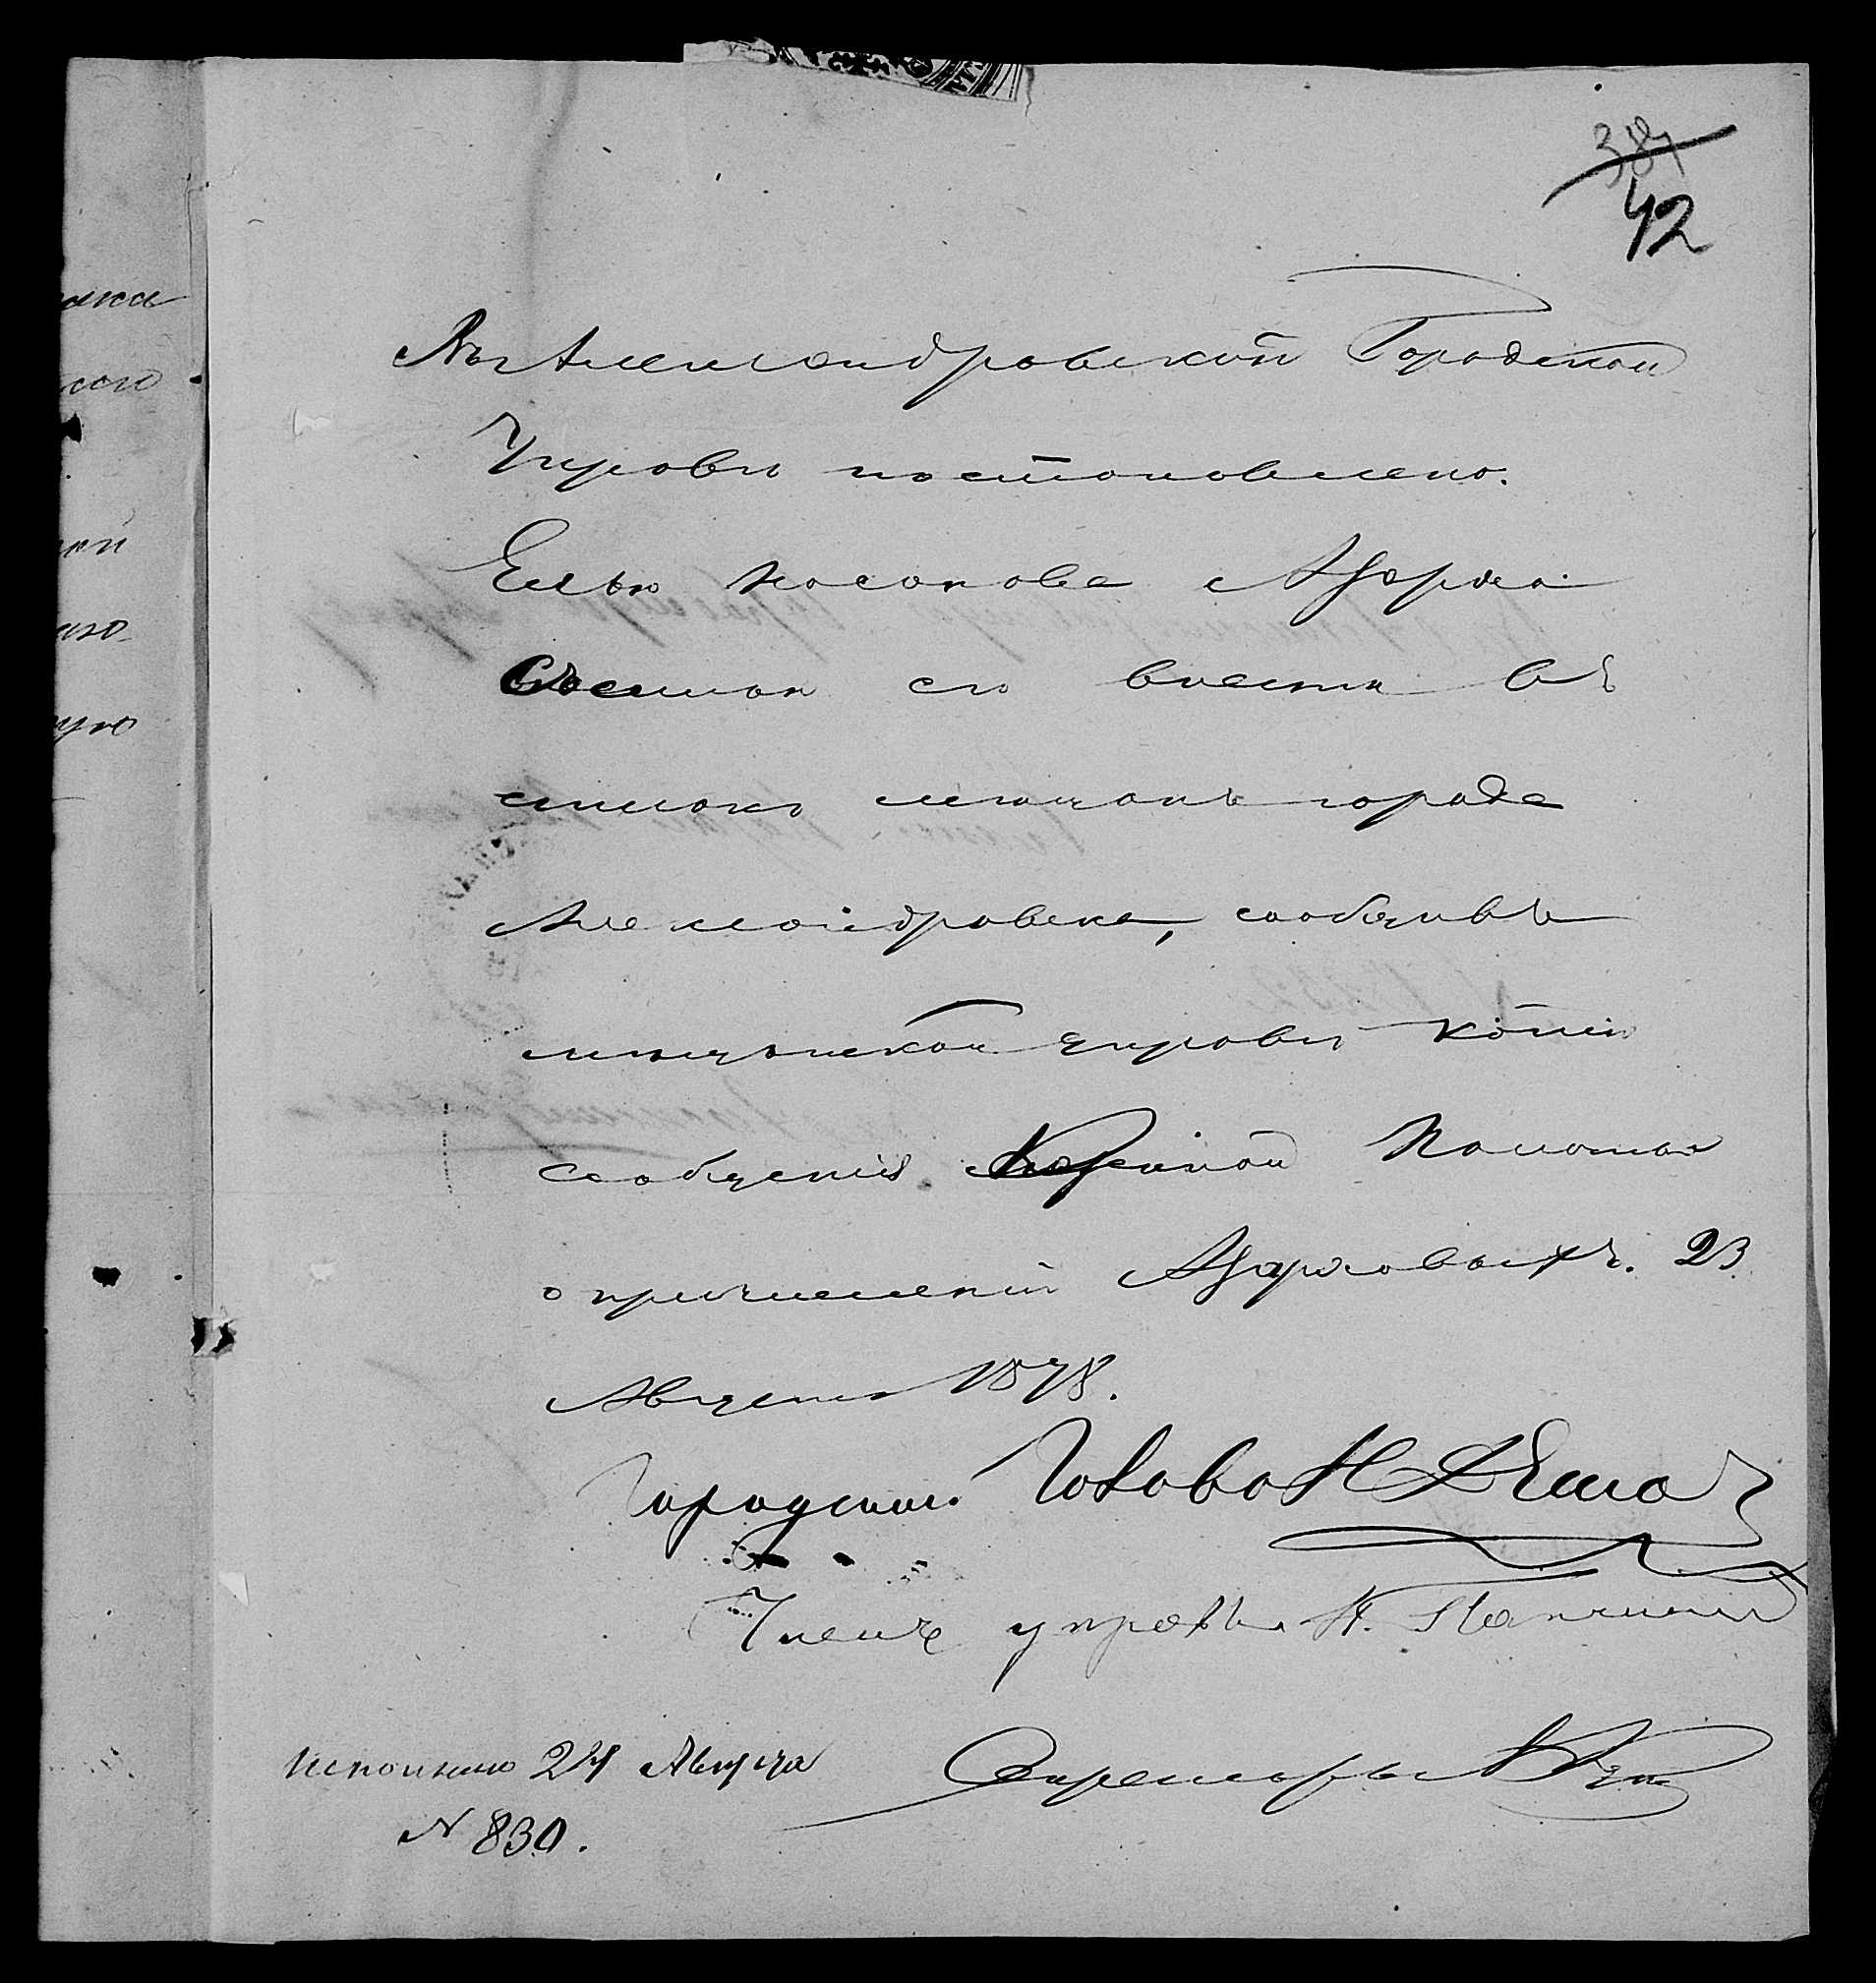 387
42
Въ Александровской Городской
Управѣ постановлено.
Елью Носонова
съ семьей его внести въ
списокъ мѣщанъ города
Александровска, сообщивъ
мѣщанской управѣ копію
сообщенія Казенной Палаты
о причисленіи 23
Августа 1878.
Городской Голова
Членъ управы Н.
Секретарь
Исполнено 24 Августа
N 830.